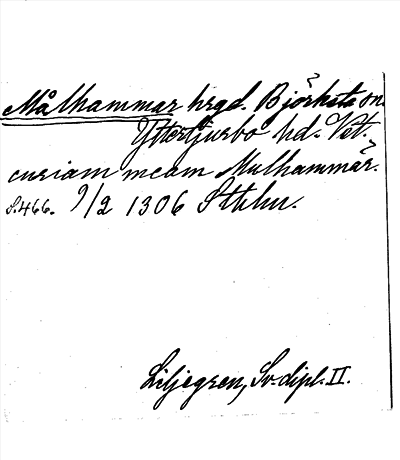 Målhammar hrgd. Björksta sn.
Yttertjurbo hd. Vet.
curiam meam Mulhammär.
S.466. 9/2 1306 Sthlm.
Liljegren, Sv. dipl. II.